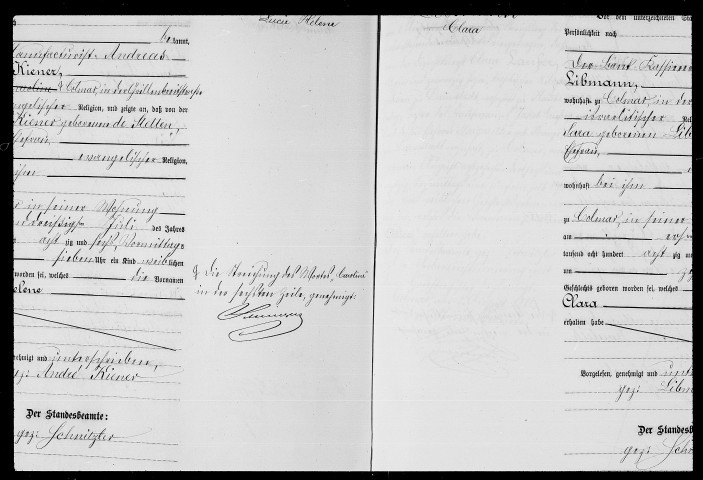 Lucie Helene
kannt,
Manufacturist Andreas
Kiener,
Colmar, in der
evangelischer Religion, und zeigte an, daß von der
Kiener geborenen de Stetten,
Ehefrau,
evangelischer Religion,
ihm
in seiner Wohnung
Juli des Jahres
acht zig und sechs, Vormittag
sieben Uhr ein Kind weiblichen
worden sei, welches die Vornamen
elene
nehmigt und unterschrieben,
gez: André Kiener
Der Standesbeamte:
gez: Schnitzler
Die Streichung des Wortes "Caroline"
in der sechsten Zeile, genehmigt:
Clara
Vor dem unterzeichneten Sta
Persönlichkeit nach
Der Bank Kassirer
Libmann,
wohnhaft zu Colmar, in der
israelitischer Rel
Sara geborenen Lib
Ehefrau,
wohnhaft bei ihm
zu Colmar, in seiner
am
tausend acht hundert acht zig
um
Geschlechts geboren worden sei, welches
Clara
erhalten habe
Vorgelesen, genehmigt und unt
gez: Libm
Der Standesb
gez: Sch